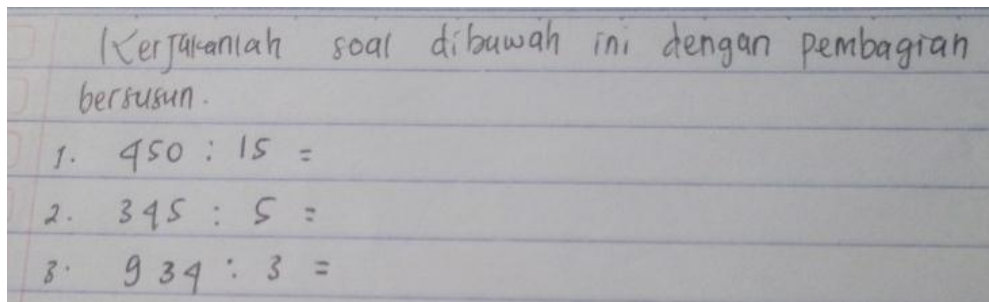 Kerjakanlah soal dibawah ini dengan pembagian
bersusun.
1. 450 : 15 =
2. 345 : 5 =
3. 934 : 3 =